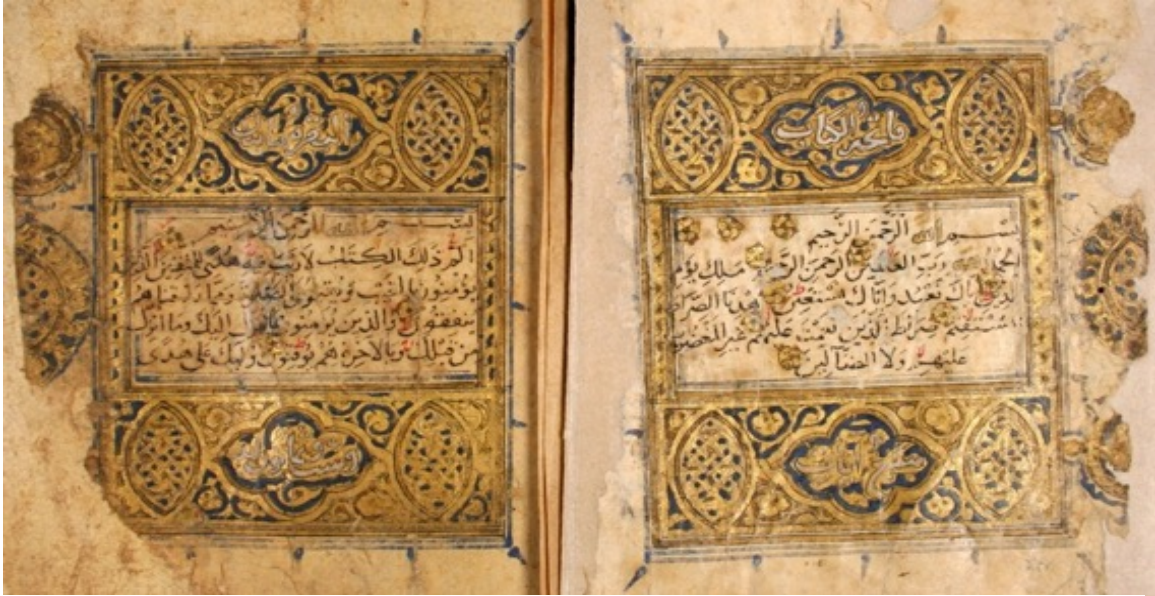 فاتحة الكتاب
بسم الله الرحمن الرحيم
الحمد لله رب العالمين الرحمن الرحيم ملك يوم
الدين إياك نعبد وإياك نستعين اهدنا الصراط
المستقيم صراط الذين أنعمت عليهم غير المغضوب
عليهم ولا الضالين
سبع آيات
بسم الله الرحمن الرحيم
الم ذلك الكتاب لا ريب فيه هدى للمتقين الذين
يؤمنون بالغيب ويقيمون الصلوة ومما رزقناهم
ينفقون والذين يؤمنون بما أنزل إليك وما أنزل
من قبلك وبالآخرة هم يوقنون أولئك على هدى